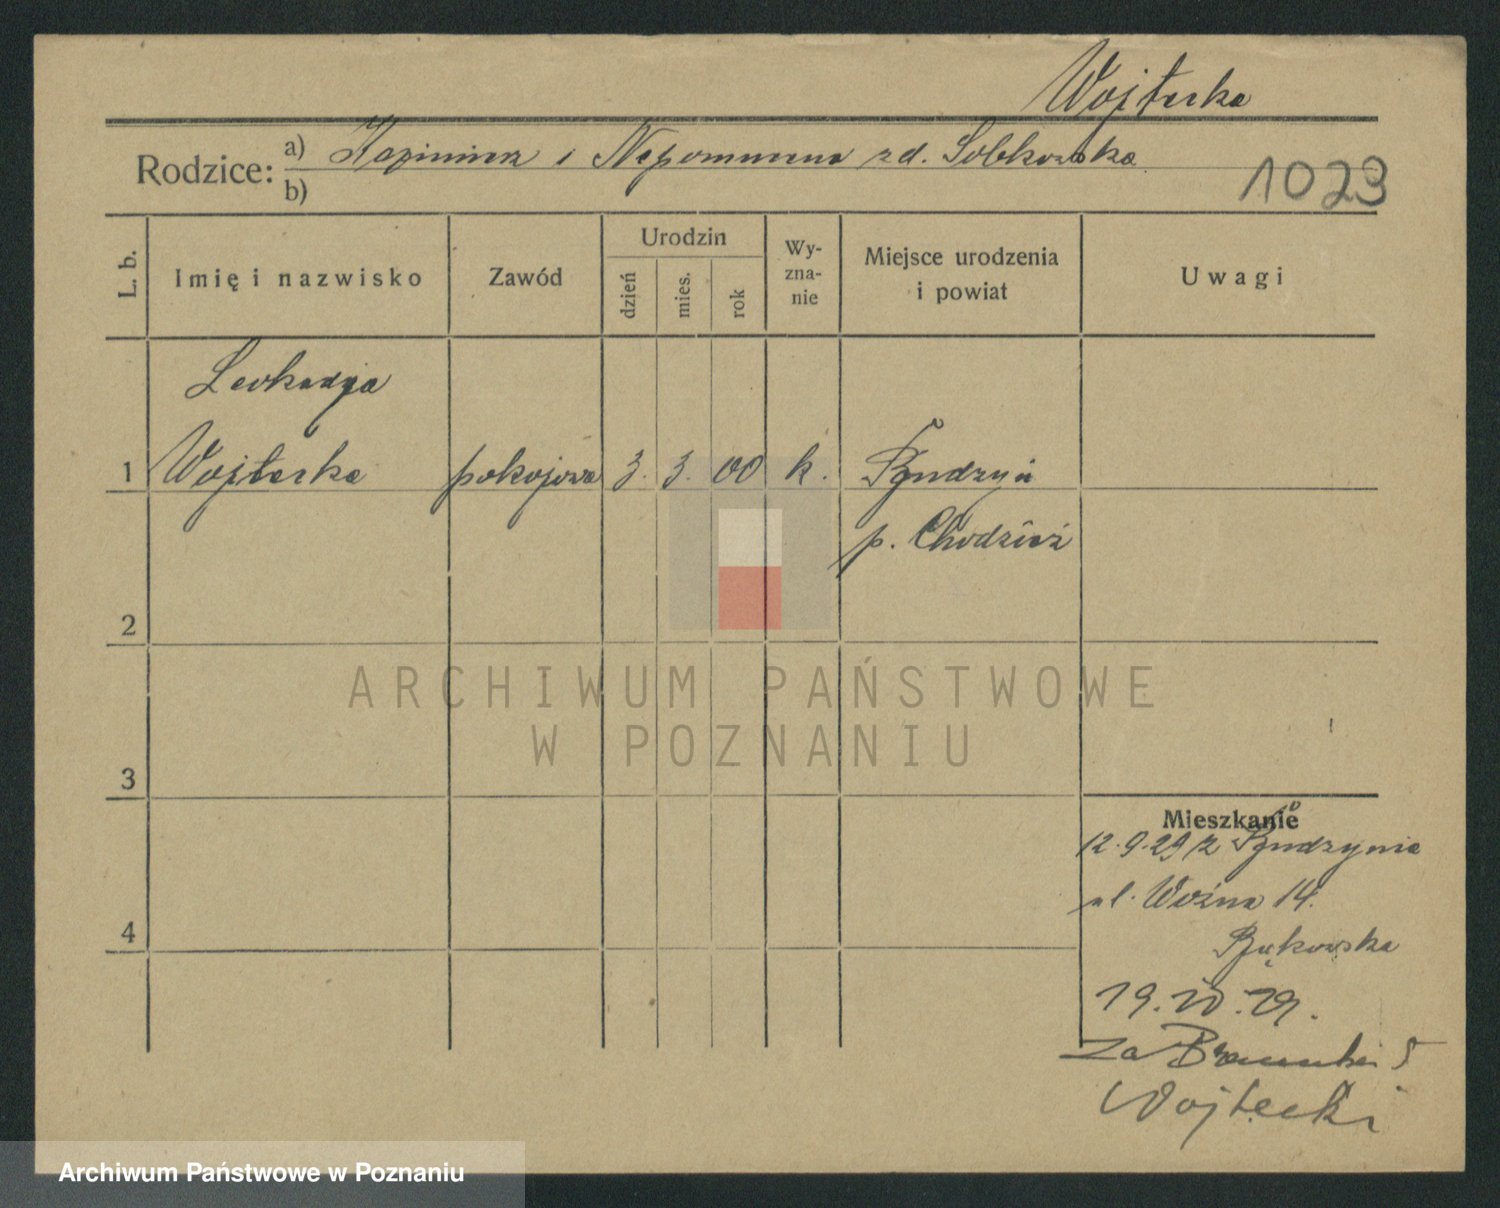 Wojterka
Rodzice: a) Kazimierz i Nepomucena zd. Sobkowska
b)
1023
L. b. Imię i nazwisko Zawód Urodzin dzień mies. rok Wyznanie Miejsce urodzenia i powiat Uwagi
Leokadja
1 Wojterka pokojowa 3. 3. 00 k.
p. Chodzież
2
ARCHIWUM PAŃSTWOWE
W POZNANIU
3
Mieszkanie
12.9.29 z
ul. Woźna 14.
4
Bąkowska
Za Bramką 5
Archiwum Państwowe w Poznaniu